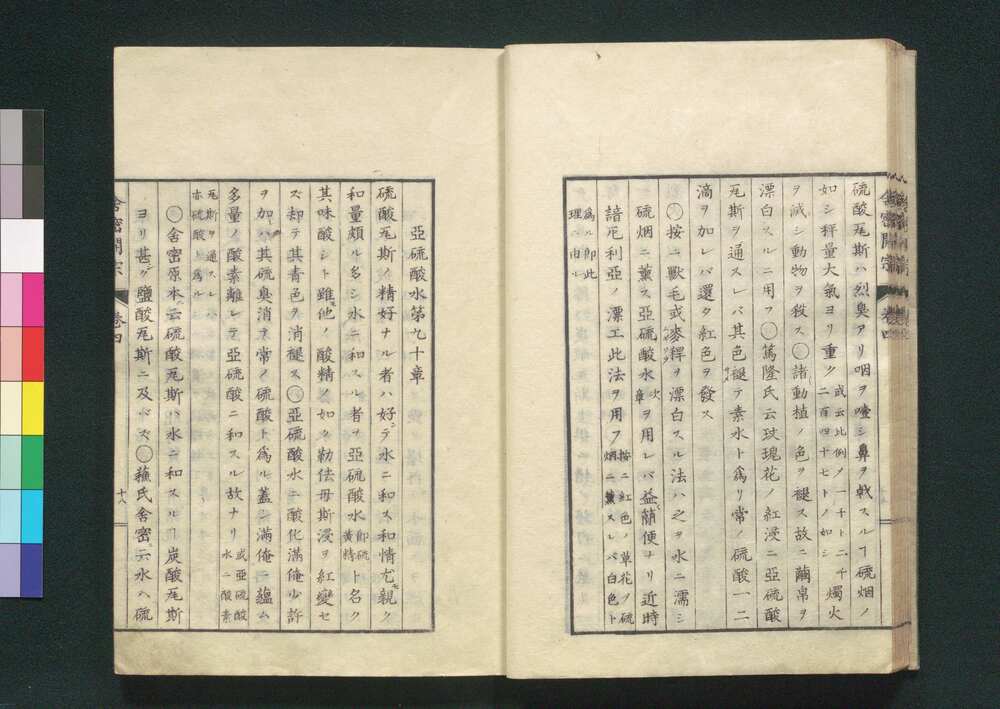 硫酸瓦斯ハ烈臭アリ咽ヲ噎シ鼻ヲ戟スルヿ硫烟ノ
如シ秤量大氣ヨリ重ク或云比例ノ一千ト二千二百四十七トノ如シ燭火
ヲ滅シ動物ヲ殺ス○諸動植ノ色ヲ褪ス故ニ繭帛ヲ
漂白スルニ用フ○篤隆氏云玫瑰花ノ紅浸ニ亞硫酸
瓦斯ヲ通スレバ其色褪テ素水ト爲リ常ノ硫酸一二
滴ヲ加レバ還タ紅色ヲ發ス
○按ニ獸毛或麥稈ヲ漂白スル法ハ之ヲ水ニ濡シ
硫烟ニ薫ス亞硫酸水次章ヲ用レバ益簡便ヨリ近時
諳厄利亞ノ漂工此法ヲ用フ按ニ紅色ノ草花ヲ硫烟ニ薫スレバ白色ト
爲ル即此理ニ由ル
舎密開宗
卷四
亞硫酸水第九十章
硫酸瓦斯ノ精好ナル者ハ好テ水ニ和ス和情尤親ク
和量頗ル多シ水ニ和スル者ヲ亞硫酸水即硫黄精ト名ク
其味酸シト雖モ他ノ酸精ノ如ク勒佉母斯浸ヲ紅變セ
ズ却テ其青色ヲ消褪ス○亞硫酸水ニ酸化滿俺少許
ヲ加レハ其硫臭消テ常ノ硫酸ト爲ル蓋シ滿俺ニ蘊ム
多量ノ酸素離レテ亞硫酸ニ和スル故ナリ或亞硫酸水ニ酸素
瓦斯ヲ通スレハ亦硫酸ト爲ル
○舎密原本云硫酸瓦斯ハ水ニ和スルヿ炭酸瓦斯
ヨリ甚ダ鹽酸瓦斯ニ及バズ○蘓氏舎密云水ヘ硫
舎密開宗
卷四
十八